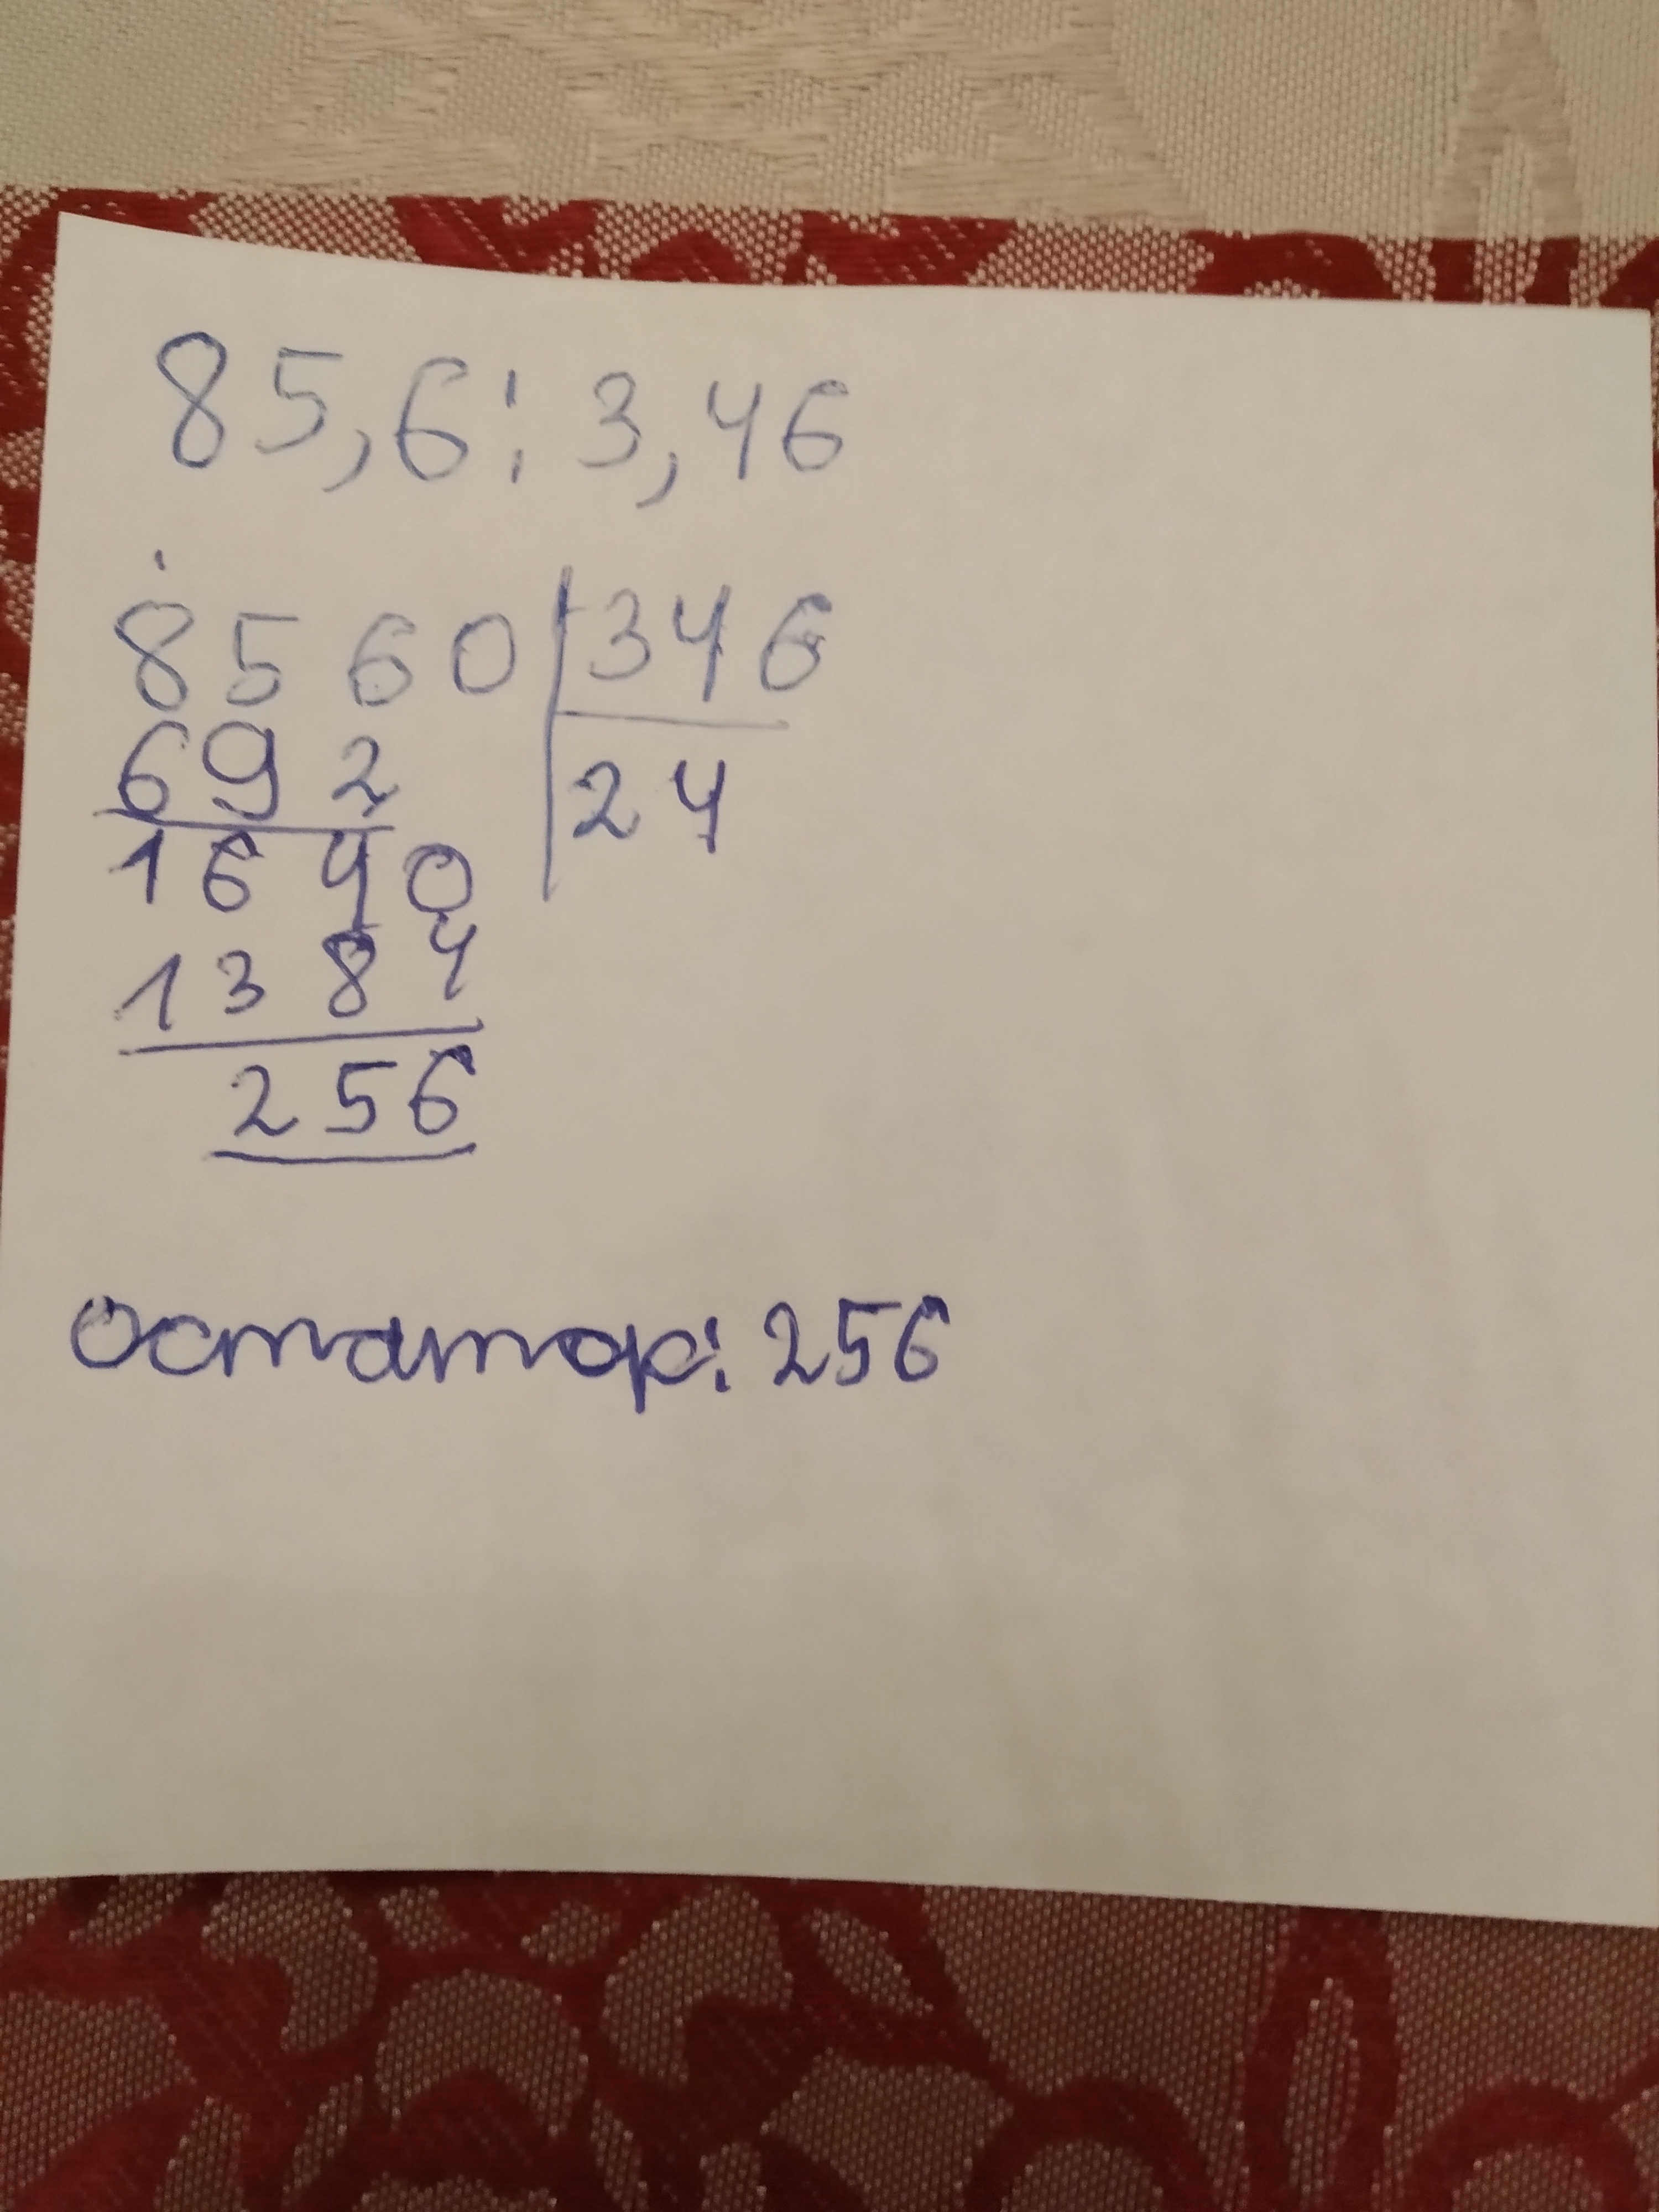 85,6 : 3,46
8560 | 346
692 | 24
1640
1384
256
остатор: 256